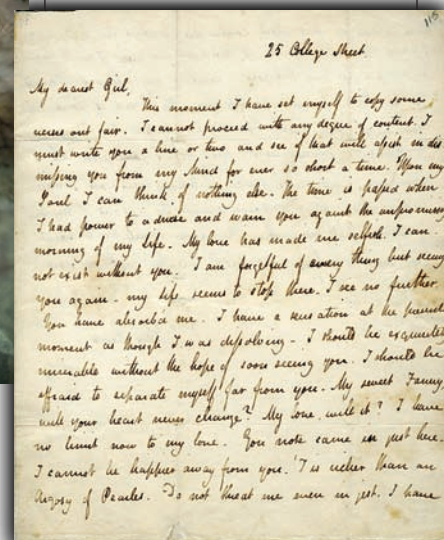 115
25 College Street.
My dearest Girl,
This moment I have set myself to copy some
verses out fair. I cannot proceed with any degree of content. I
must write you a line or two and see if that will assist in dis
missing you from my Mind for ever so short a time. Upon my
Soul I can think of nothing else. The time is passed when
I had power to advise and warn you against the unpromising
morning of my Life. My love has made me selfish. I can
not exist without you. I am forgetful of every thing but seeing
you again. my Life seems to stop there. I see no further.
You have absorb'd me. I have a sensation at the present
moment as though I was dissolving. I should be exquisitely
miserable without the hope of soon seeing you. I should be
affraid to separate myself far from you. My sweet Fanny,
will your heart never change? My love, will it? I have
no limit now to my love. You note came in just here.
I cannot be happier away from you. 'T is richer than an
Argosy of Pearles. Do not threat me even in jest. I have